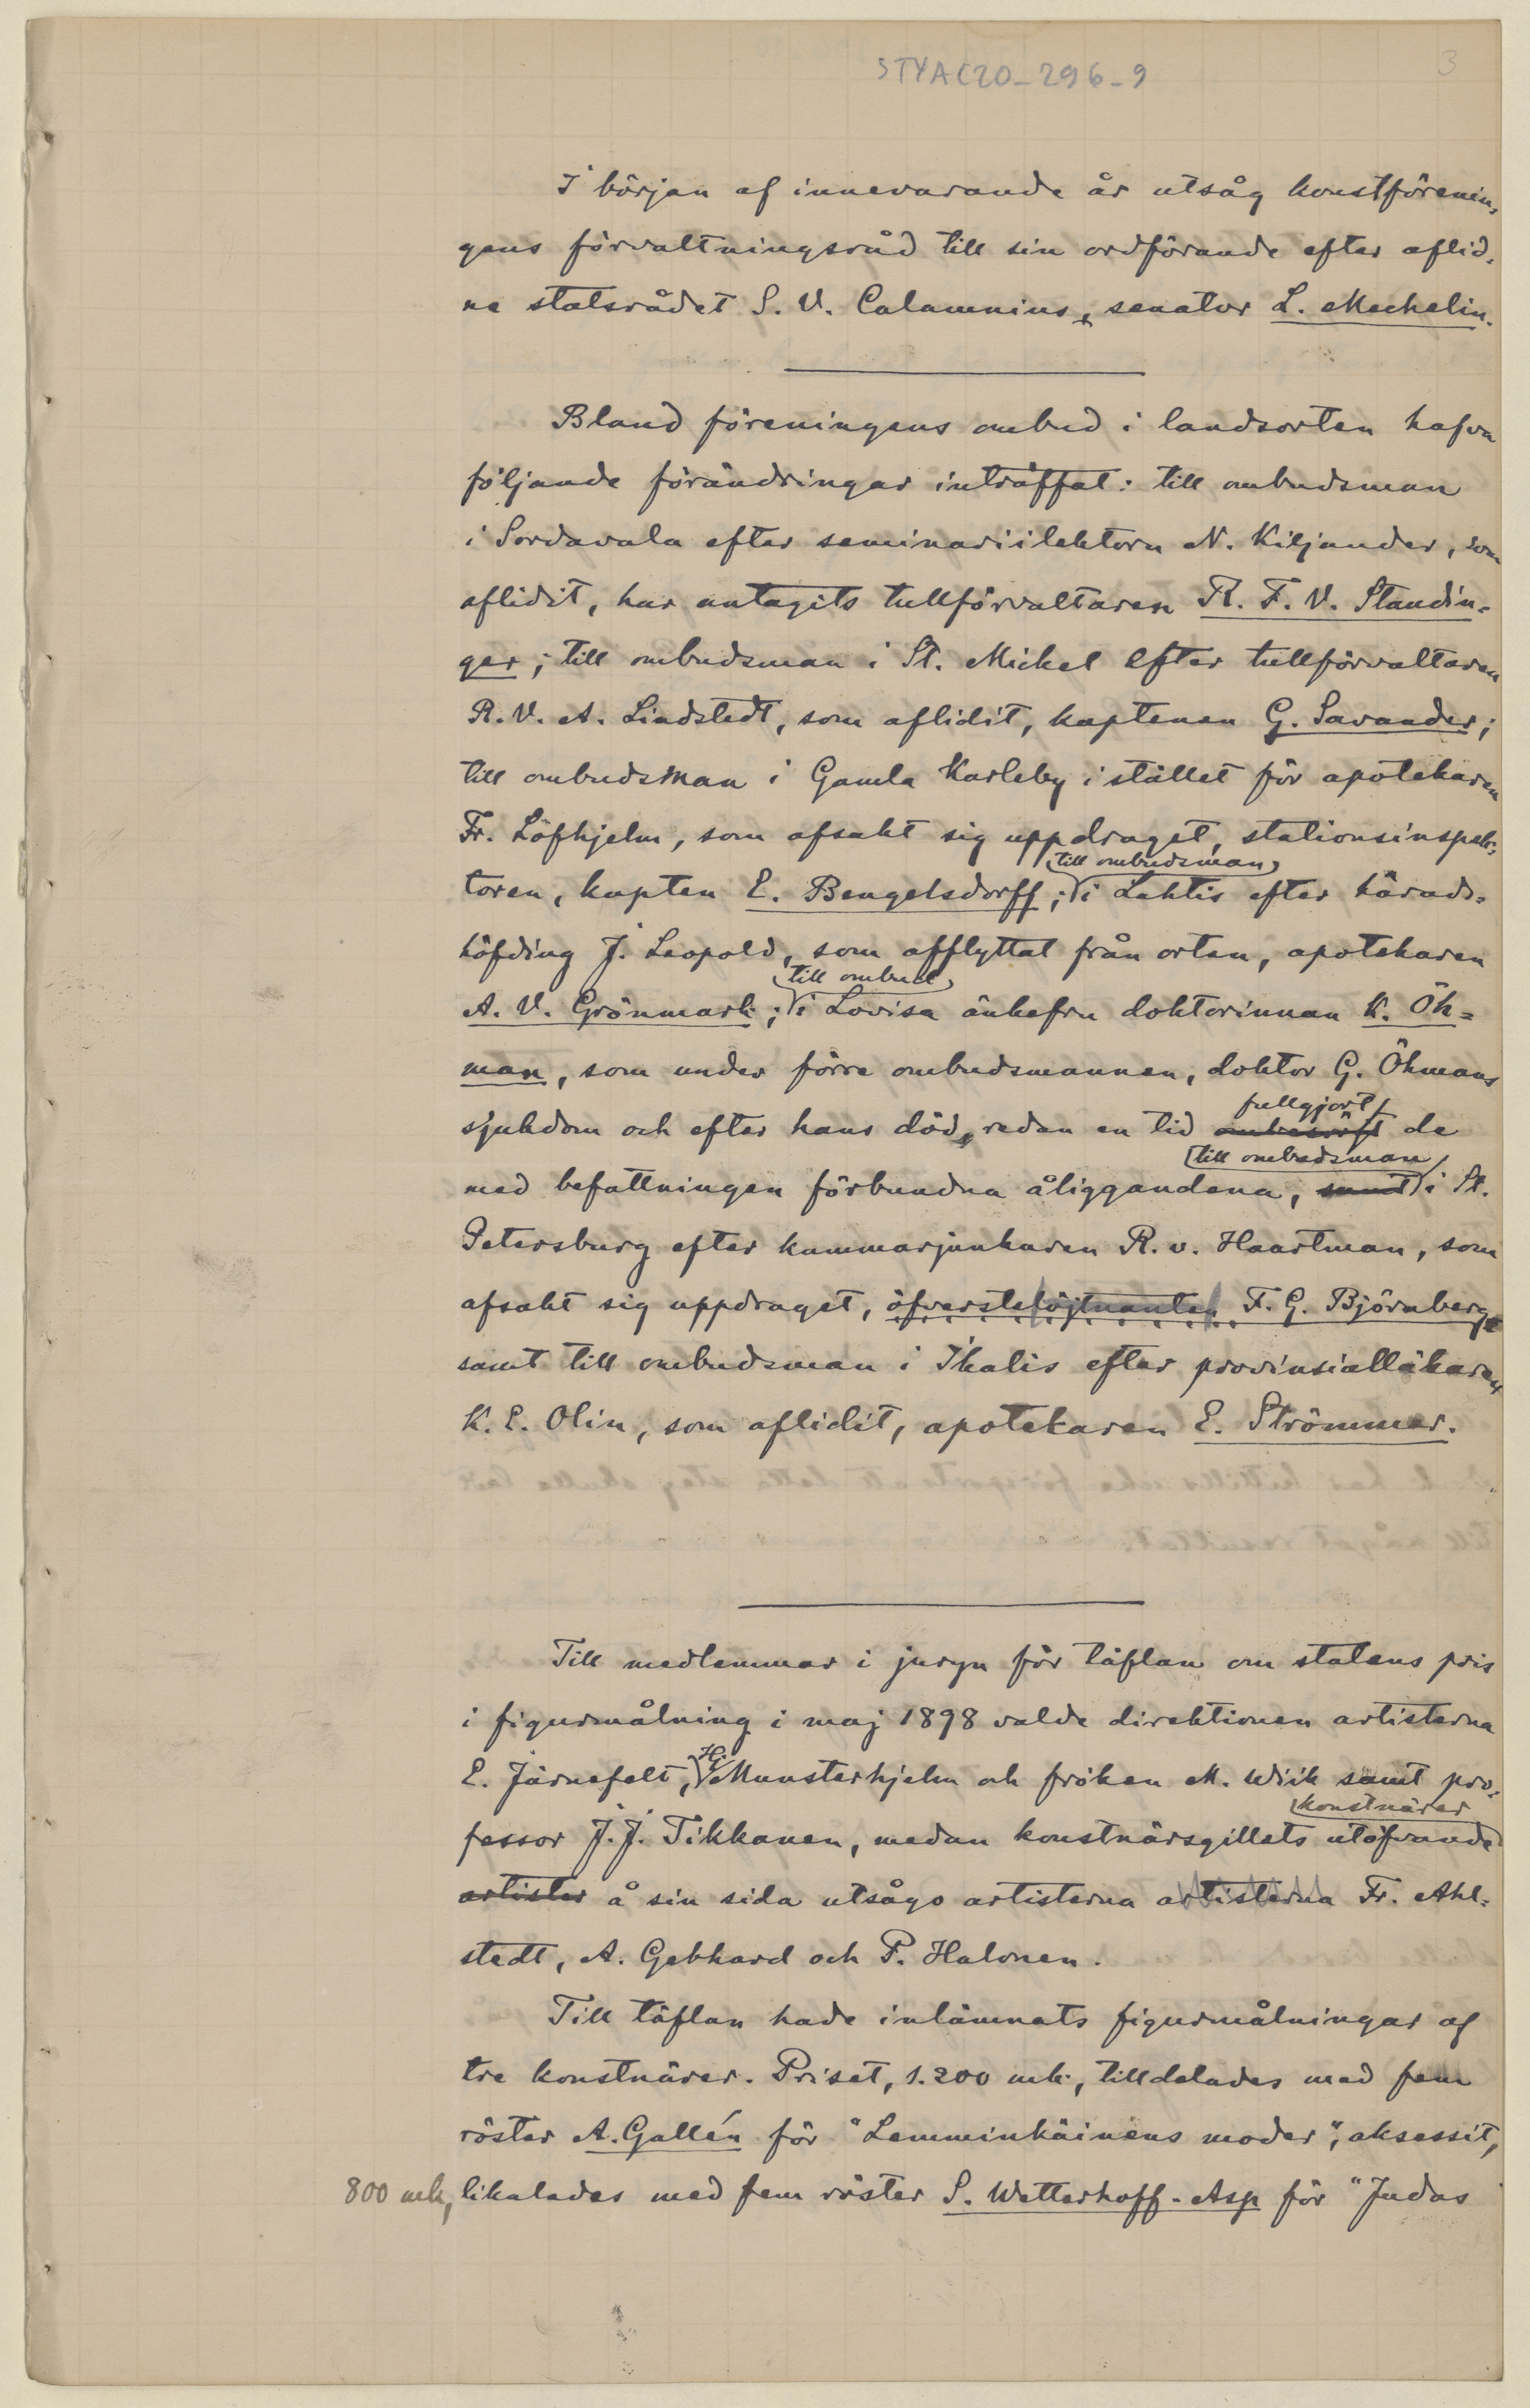 STYA C20-296-9
3
I början af innevarande år utsåg konstförenin-
gens förvaltningsråd till sin ordförande efter aflid-
ne statsrådet S. V. Calamnius, senator L. Mechelin.
Bland föreningens ombud i landsorten hafva
följande förändringar inträffat: till ombudsman
i Sordavala efter seminariilektorn N. Kiljander, som
aflidit, har antagits tullförvaltaren R. F. V. Standin-
ger; till ombudsman i St. Mickel efter tullförvaltaren
R. V. A. Lindstedt, som aflidit, kaptenen G. Savander;
till ombudsman i Gamla Karleby i stället för apotekaren
Fr. Löfhjelm, som afsakt sig uppdraget, stationsinspek-
till ombudsman
toren, kapten E. Bengelsdorff; i Lahtis efter härads-
höfding J. Leopold, som afflyttat från orten, apotekaren
till ombud
A. V. Grönmark; i Lovisa änkefru doktorinnan K. Öh-
man, som under förre ombudsmannen, doktor G. Öhmans
fullgjort
sjukdom och efter hans död, redan en tid ombesörjt de
till ombudsman
med befattningen förbundna åliggandena, samt i St.
Petersburg efter kammarjunkaren R. v. Haartman, som
afsakt sig uppdraget, öfverstelöjtnanten F. G. Björnberg
samt till ombudsman i Ikalis efter provinsialläkaren
K. E. Olin, som aflidit, apotekaren E. Strömmer.
Till medlemmar i juryn för täflan om statens pris
i figurmålning i maj 1898 valde direktionen artisterna
Hj.
E. Järnefelt, Munsterhjelm och fröken M. Wiik samt pro-
konstnärer
fessor J. J. Tikkanen, medan konstnärsgillets utöfvande
artister å sin sida utsågo artisterna artisterna Fr. Ahl-
stedt, A. Gebhard och P. Halonen.
Till täflan hade inlämnats figurmålningar af
tre konstnärer. Priset, 1.200 mk, tilldelades med fem
röster A. Gallén för "Lemminkäinens moder", aksessit,
800 mk, likalades med fem röster S. Wetterhoff-Asp för "Judas